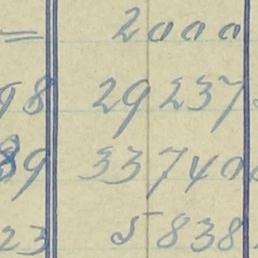 = 2000
98 29237
89 33740
23 5838